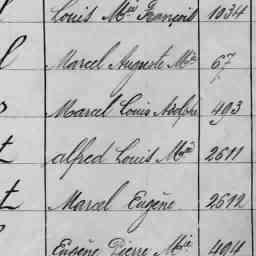 Louis Mie François 1034
Marcel Auguste Mie 67
Marcel Louis Adolphe 493
t alfred Louis Mie 2611
t Marcel Eugène 2612
Eugène Pierre Mie 494